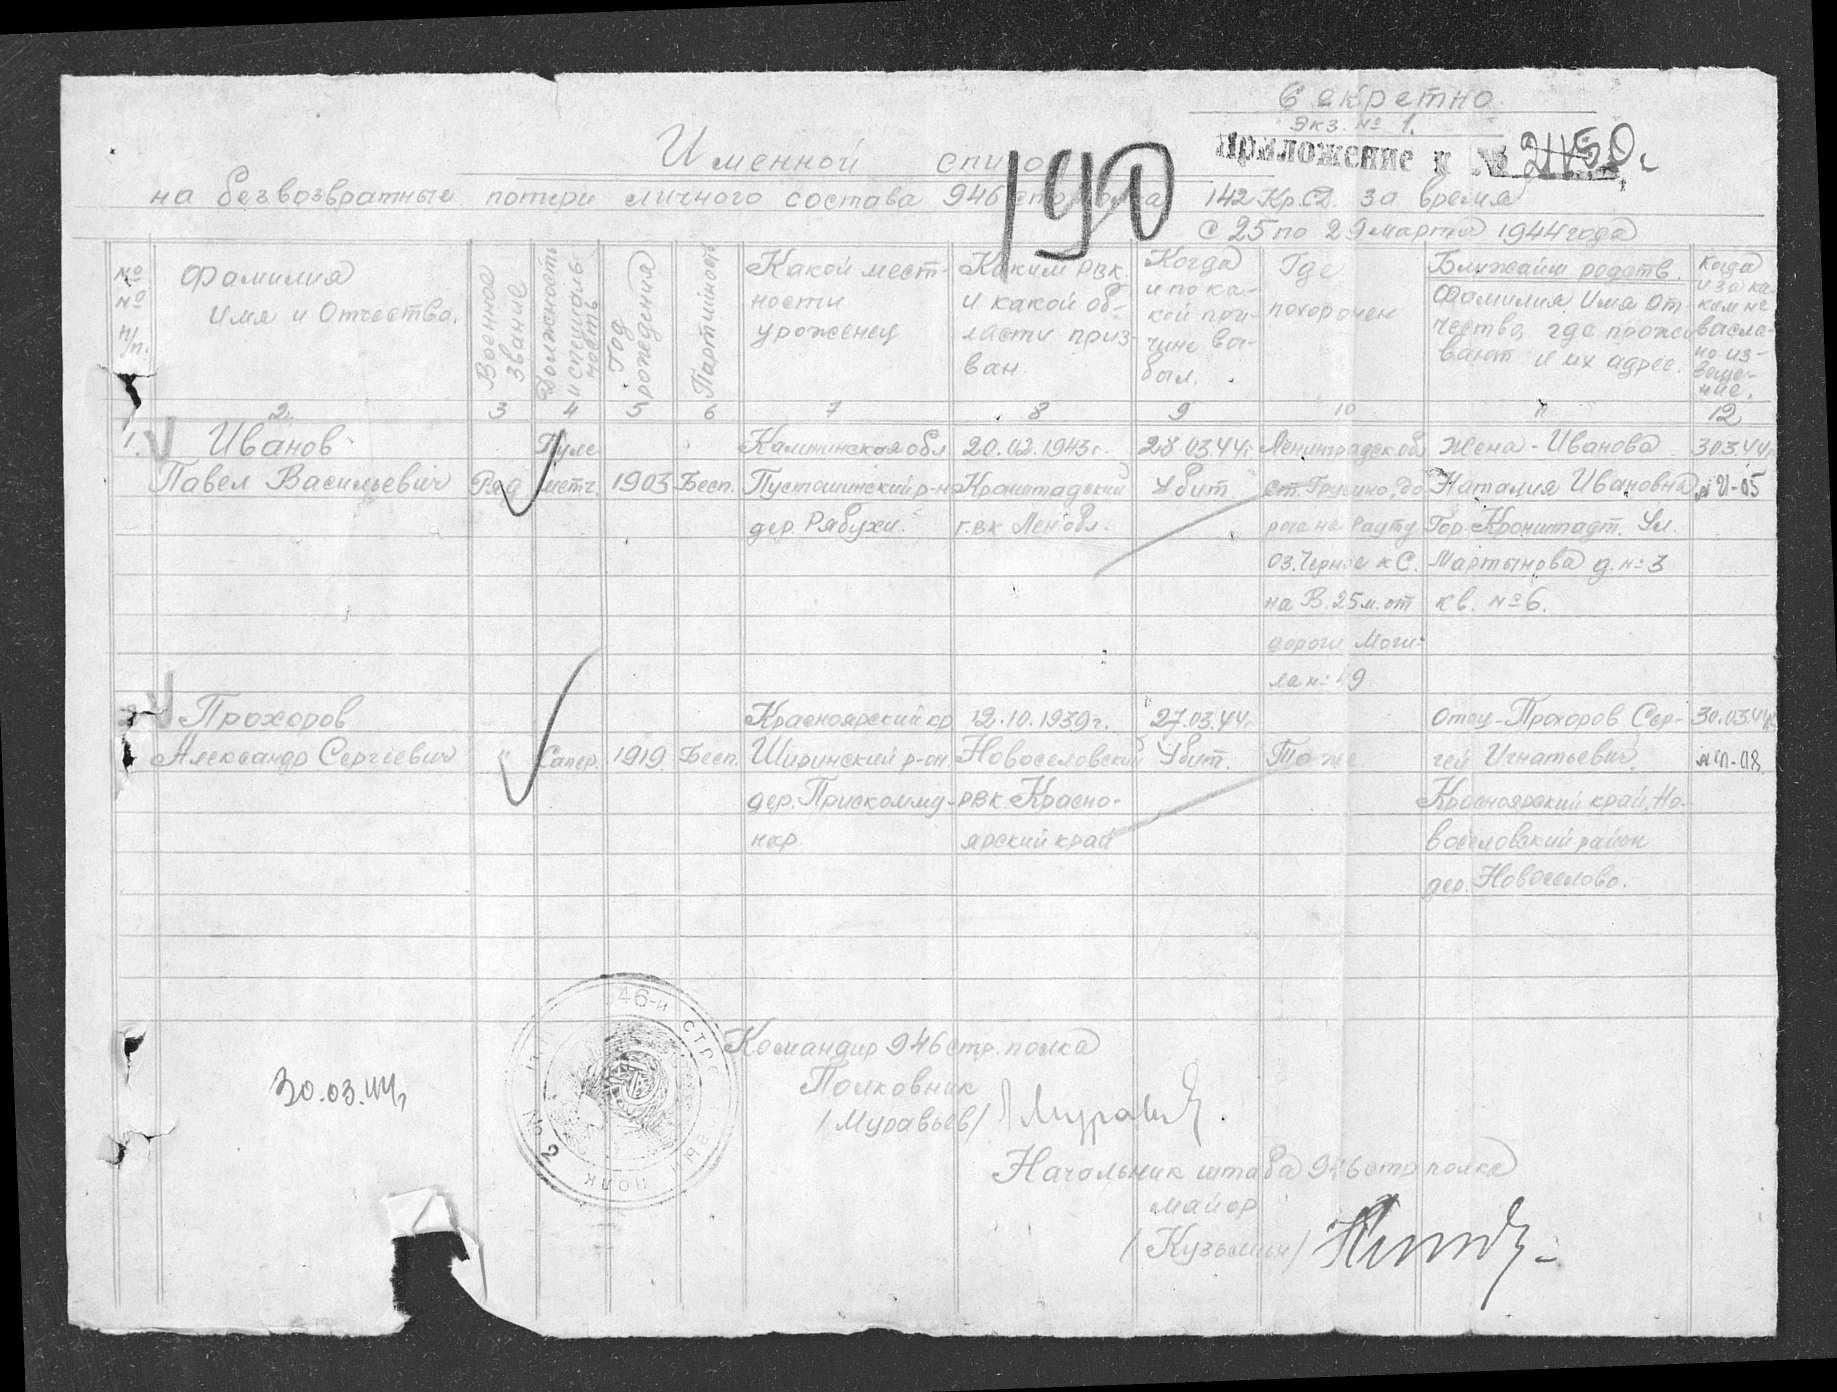 Секретно
Экз. № 1.
Приложение к №
Именной список
190
на безвозвратные потери личного состава 946 стр. полка 142 Кр.СД. за время
с 25 по 29 марта 1944 года
№ № п/п.
Фамилия
имя и Отчество.
Военное звание
Должность и специальность
Год рождения
Партийность
Какой мест-
ности
уроженец
Каким РВК.
и какой об-
ласти приз-
ван.
Когда
и по ка-
кой при-
чине вы-
был.
Где
похоронен
Ближайш родств.
Фамилия Имя От-
чество, где прожи-
вают и их адрес.
Когда
и за ка-
ким №
высла-
но из-
веще-
ние.
2. 3 4 5 6 7 8 9 10 11 12
1. Иванов
Павел Васильевич
Ряд
Пуле
метч.
1903
Бесп.
Калининская обл
Пустошинский р-н
дер. Рябухи.
20.02.1943г.
Кронштадский
г.вк Лен обл.
28.03.44г
Убит
Ленинградск обл
ст. Грузино, до
рога на Рауту
оз. Черное к С.
на В. 25 м. от
дороги Моги-
ла № 49
Жена - Иванова
Наталия Ивановна
Гор. Кронштадт. Ул.
Мартынова д. № 3
кв. № 6.
30.3.44г
№ 21-05
Прохоров
Александр Сергеевич
"
Сапер.
1919
Бесп.
Красноярский кр
Ширинский р-он.
дер. Приском му-
нар
12.10.1939г.
Новоселовский
РВК. Красно-
ярский край
27.03.44г
Убит.
То же
Отец - Прохоров Сер-
гей Игнатьевич.
Красноярский край, Но-
воселовский район
дер. Новоселово.
30.03.44г
946-й СТРЕ ВЫЙ ПОЛК № 2
30.03.44г
Командир 946 стр. полка
Полковник
/Муравьев/
Начальник штаба 946 стр полка
майор
/Кузьмин/